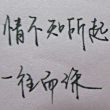 情不知所起
一往而深